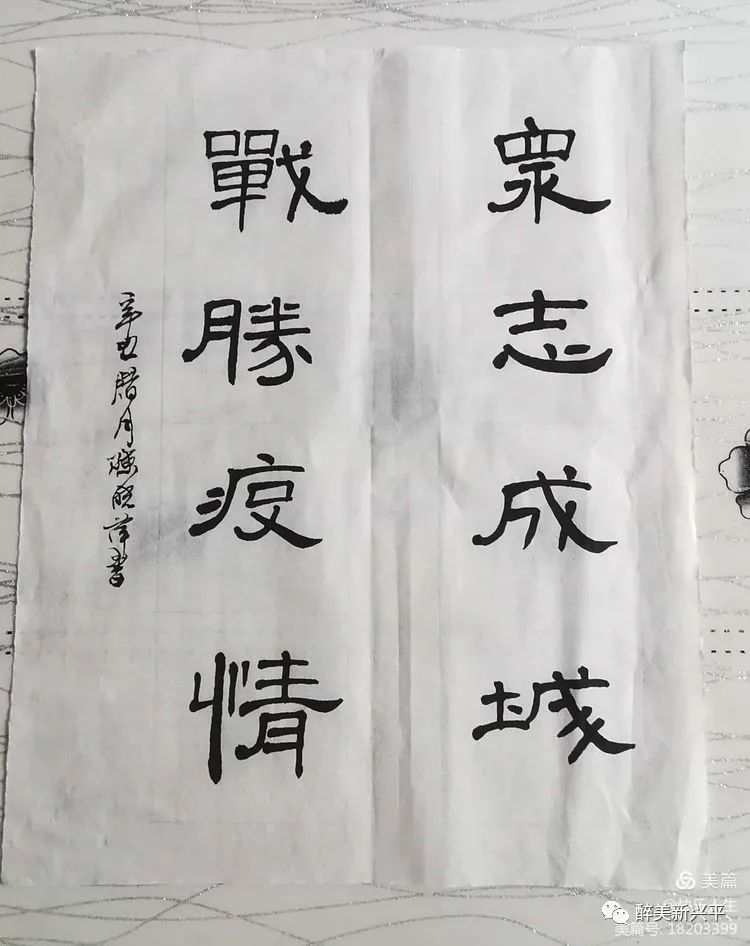 眾志成城
戰勝疫情
辛丑腊月 晓萍書
美篇
醉美新兴平
美篇号: 18203399